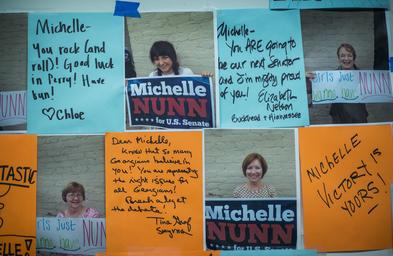 Michelle-
You rock (and
roll)! Good luck
in Perry! Have
fun!
♡Chloe
NN
Michelle
NUNN
for U.S. Senate
Michelle-
You ARE going to
be our next Senator
and I'm mighty proud
of you!
Elizabeth
Nelson
Buckhead + Hunnicutt
Girls Just
NUNN
TASTIC
!
LLE
Girls Just
NUN
Dear Michelle,
Know that so many
Georgians believe in
you! You are representing
the right issues for
all Georgians!
at the debate!
Tina
Smyrna
Michelle
NUNN
for U.S. Senate
MICHELLE
VICTORY IS
YOURS!